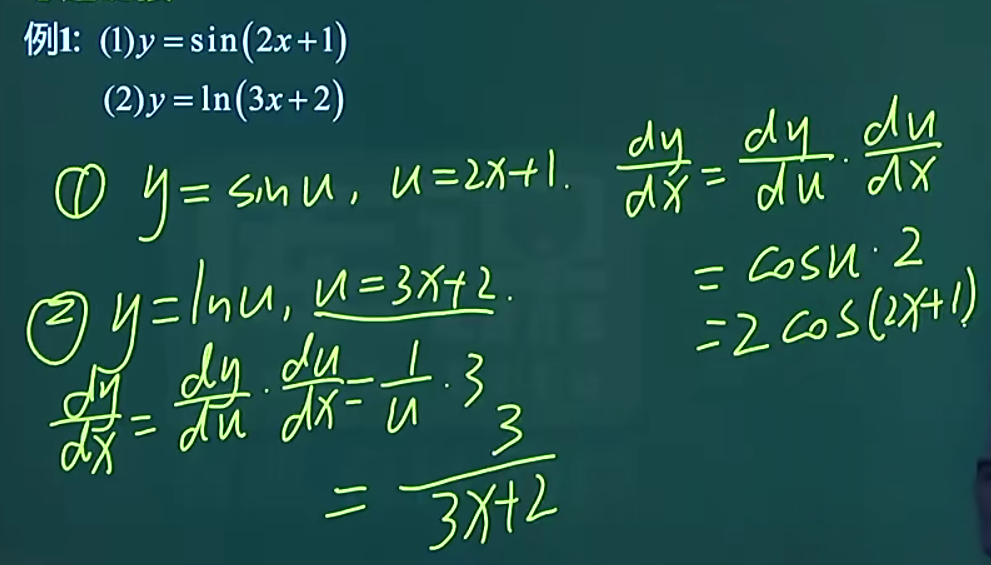 例1: (1)y=sin(2x+1)
(2)y=ln(3x+2)
① y=sinu, u=2x+1. dy/dx=dy/du·du/dx
=cosu·2
=2cos(2x+1)
② y=lnu, u=3x+2.
dy/dx=dy/du·du/dx=1/u·3
=3/(3x+2)